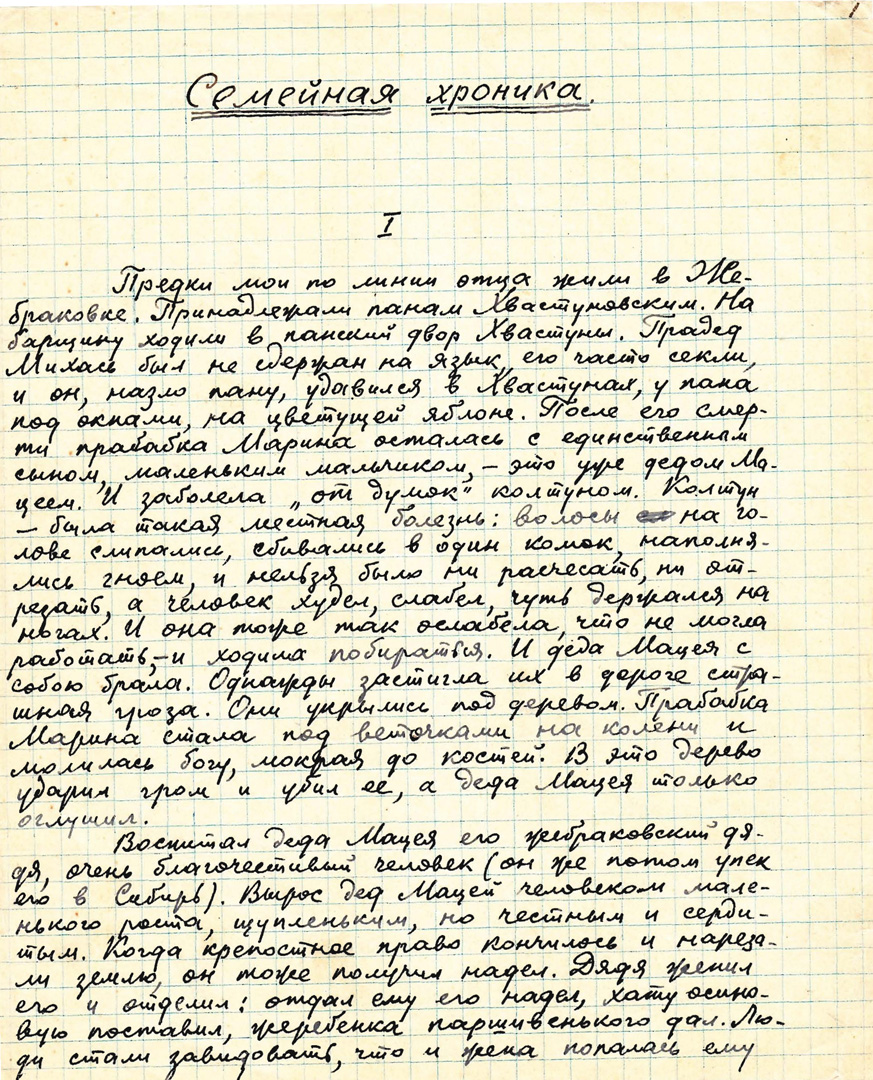 1
Семейная хроника.
I
Предки мои по линии отца жили в Же-
браковке. Принадлежали панам Хвастуновским. На
барщину ходили в панский двор Хвастуны. Прадед
Михась был не сдержан на язык, его часто секли,
и он, назло пану, удавился в Хвастунах, у пана
под окнами, на цветущей яблоне. После его смер-
ти прабабка Марина осталась с единственным
сыном, маленьким мальчиком, – это уже дедом Ма-
цеем. И заболела „от думок“ колтуном. Колтун
– была такая местная болезнь: волосы на го-
лове слипались, сбивались в один комок, наполня-
лись гноем, и нельзя было ни расчесать, ни от-
резать, а человек худел, слабел, чуть держался на
ногах. И она тоже так ослабела, что не могла
работать, – и ходила побираться. И деда Мацея с
собою брала. Однажды застигла их в дороге стра-
шная гроза. Они укрылись под деревом. Прабабка
Марина стала под веточками на колени и
молилась богу, мокрая до костей. В это дерево
ударил гром и убил ее, а деда Мацея только
оглушил.
Воспитал деда Мацея его жебраковский дя-
дя, очень благочестивый человек (он же потом упек
его в Сибирь). Вырос дед Мацей человеком мале-
нького роста, щупленьким, но честным и серди-
тым. Когда крепостное право кончилось и нареза-
ли землю, он тоже получил надел. Дядя женил
его и отделил: отдал ему его надел, хату осино-
вую поставил, жеребенка паршивенького дал. Лю-
ди стали завидовать, что и жена попалась ему